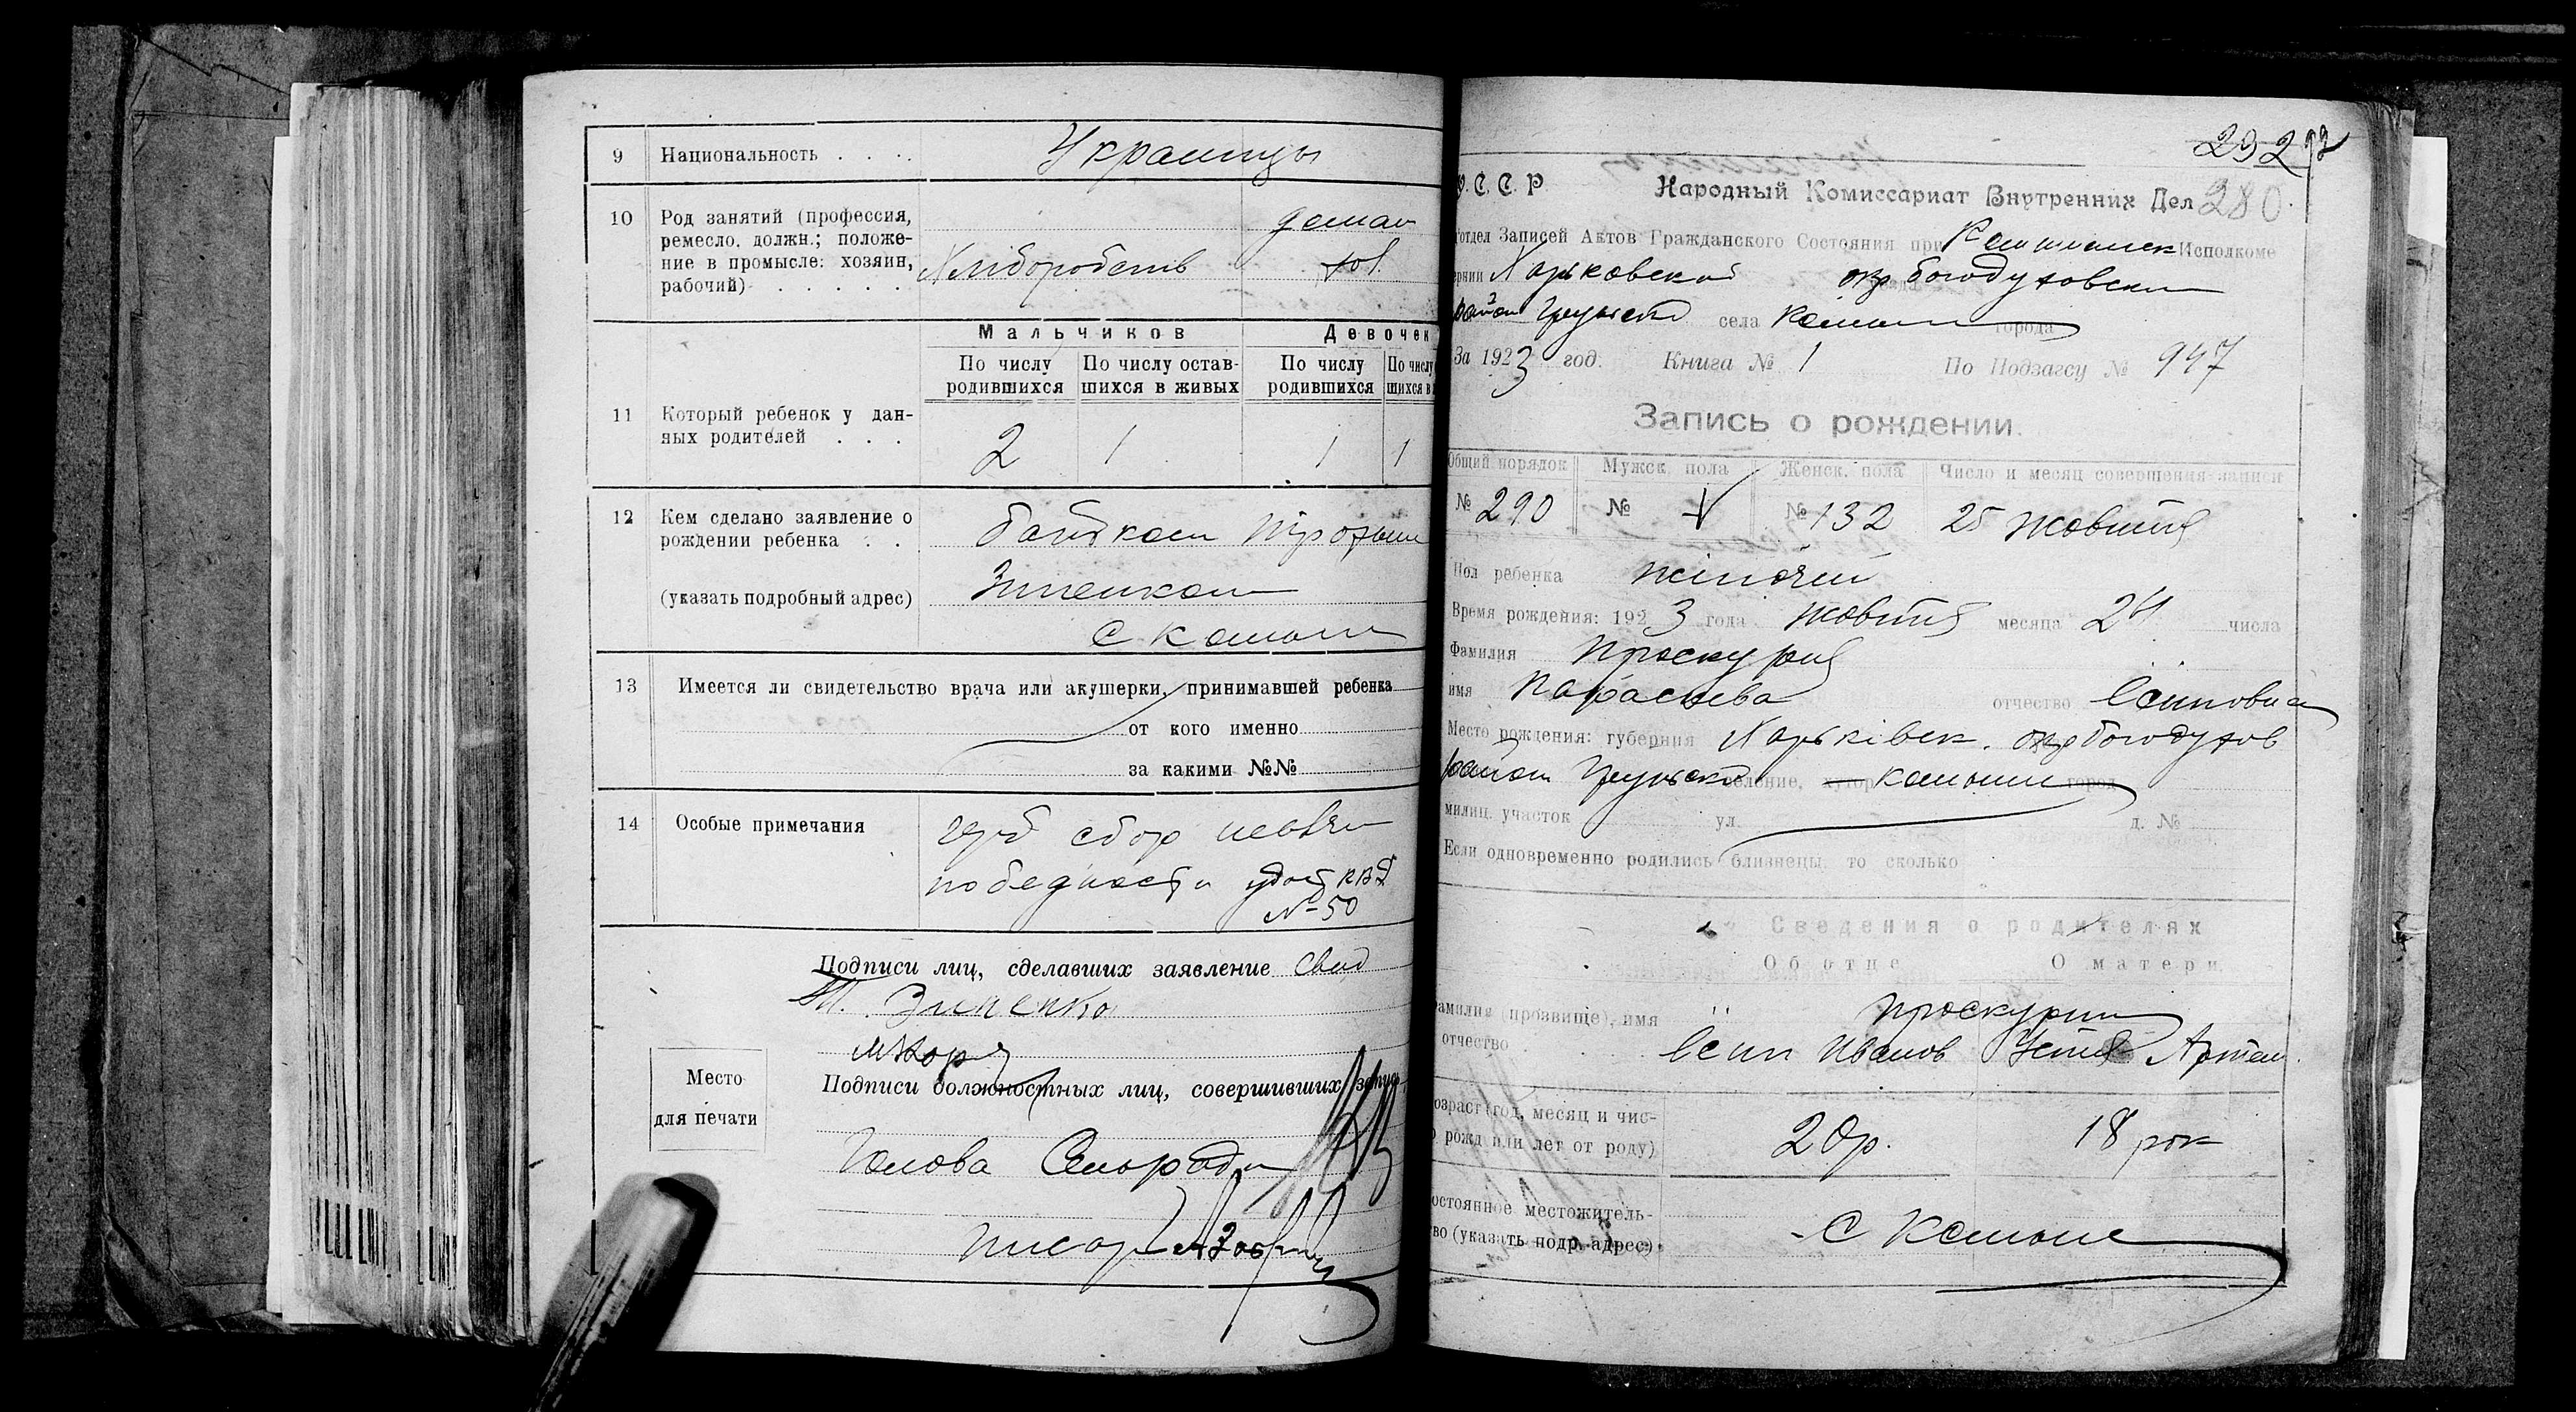 9 Национальность . . . . Украинцы
10 Род занятий (профессия,
ремесло, должн.; положе-
ние в промысле: хозяин,
рабочий) . . . . .
Хліборобств
домаш
хоз.
Мальчиков Девочек
По числу родившихся
По числу остав-
шихся в живых
По числу родившихся
По числу
шихся в
11 Который ребенок у дан-
ных родителей . . .
2 1 1 1
12 Кем сделано заявление о
рождении ребенка . .
(указать подробный адрес)
батьком
Зиненком
с Камыши
13 Имеется ли свидетельство врача или акушерки, принимавшей ребенка
от кого именно
за какими №№
14 Особые примечания
герб сбор
по бедности удост КВД
№ 50
Подписи лиц, сделавших заявление свид
Т. Зиненко
Подписи должностных лиц, совершивших запись
Место
для печати
Голова Сельради
писарь
292
У. С. С. Р. Народный Комиссариат Внутренних Дел 280
отдел Записей Актов Гражданского Состояния при Исполкоме
ернии Харьковской окр Богодуховски
район Грунськ села Камыши города
За 1923 год. Книга № 1 По Подзагсу № 947
Запись о рождении.
Общий порядок Мужск. пола Женск. пола Число и месяц совершения записи
№ 290 № № 132 25 жовтня
Пол ребенка жіночий
Время рождения: 1923 года жовтня месяца 24 числа
Фамилия Проскурня
имя Параскева отчество Осиповна
Место рождения: губерния Харьківск. окр Богодухов
район Грунськ селение, хутор Камыши город
милиц. участок ул. д. №
Если одновременно родились близнецы, то сколько
Сведения о родителях
Об отце О матери
Фамилия (прозвище), имя
отчество
Осип Иванов Устин Артем.
возраст (год, месяц и чис-
рожд или лет от роду)
20 р. 18 рок
остоянное местожитель-
во (указать подр. адрес)
с Камыше